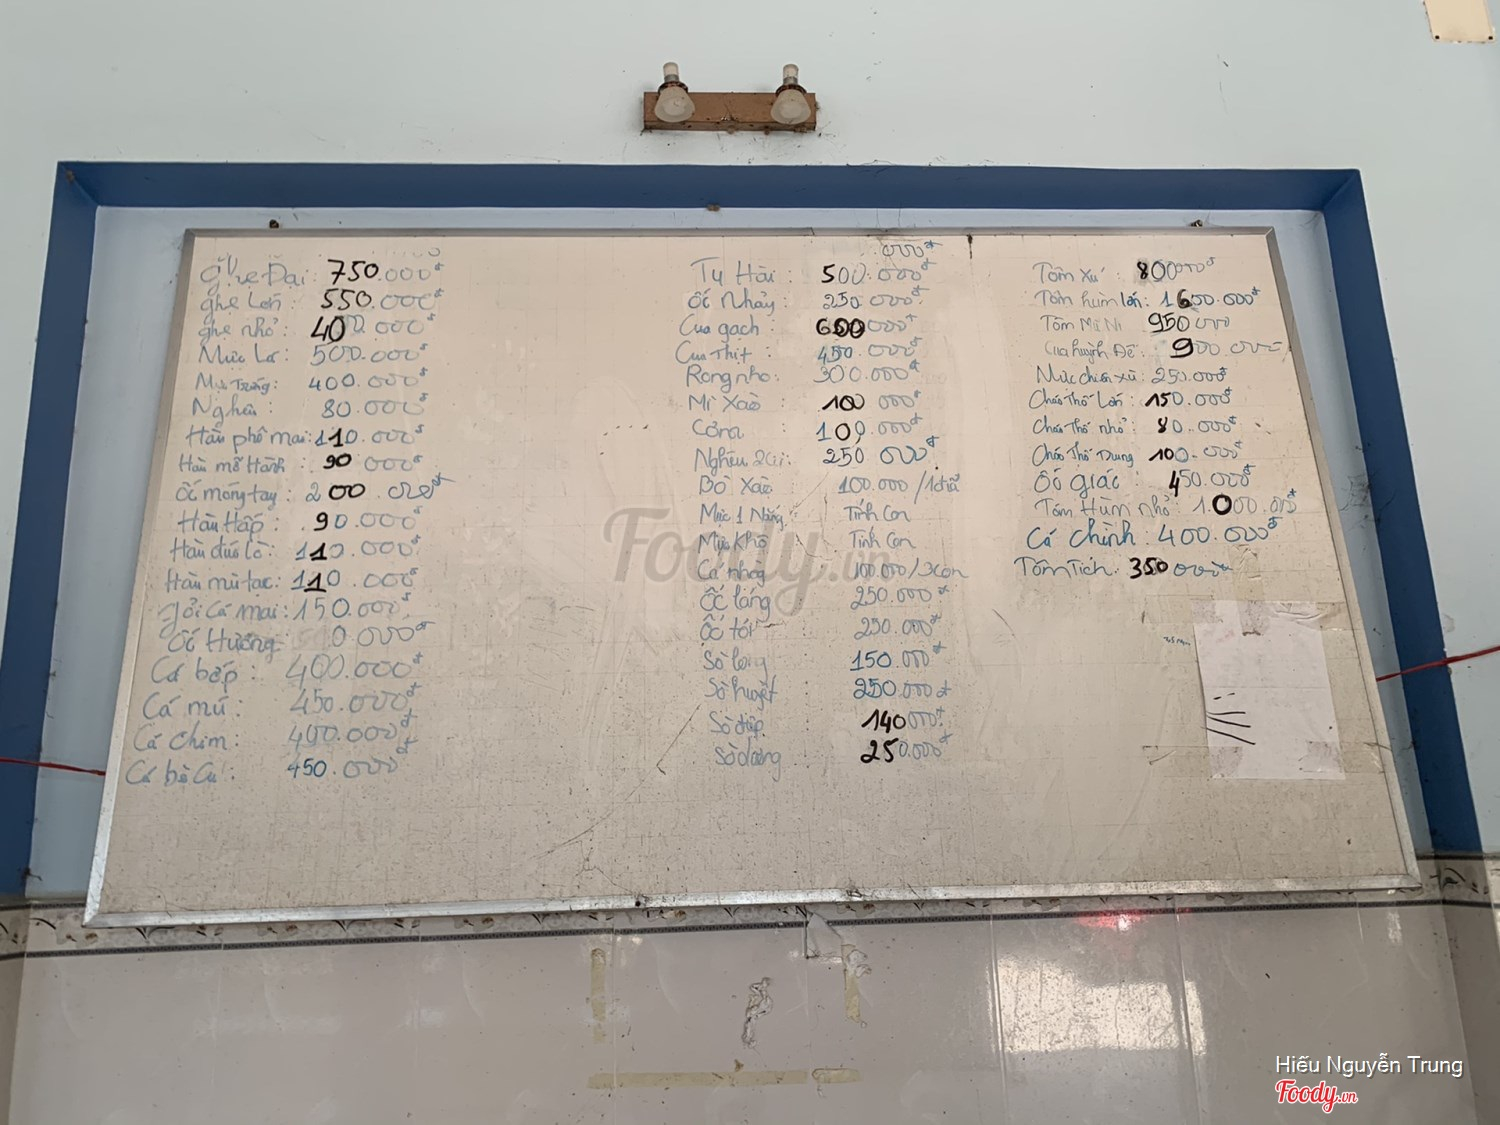 000đ
Ghẹ Đại: 750.000đ
ghẹ Lớn: 550.000đ
ghẹ nhỏ: 400.000đ
Mực Lá: 500.000đ
Mực Trứng: 400.000đ
Nghêu: 80.000đ
Hàu phô mai: 110.000đ
Hàu mỡ Hành: 90 000đ
Ốc móng tay: 200.000đ
Hàu Hấp: 90.000đ
Hàu đút lò: 110.000đ
Hàu mù tạc: 110.000đ
gỏi Cá mai: 150.000đ
Ốc Hương: 000đ
Cá bớp: 400.000đ
Cá mú: 450.000đ
Cá chim: 400.000đ
Cá bò Cu: 450.000đ
Tu Hài: 500.000đ
Ốc Nhảy: 250 000đ
Cua gạch: 600 000đ
Cua Thịt: 450.000đ
Rong nho: 300.000đ
Mì Xào: 100 000đ
Cơm: 100.000đ
Nghêu 2 cùi: 250 000đ
Bò Xào: 100.000/1 đĩa
Mực 1 Nắng: Tính Con
Mực Khô: Tính Con
Cá nhồng 100.000/3con
Ốc láng 250.000đ
Ốc tỏi 250.000đ
Sò lông 150.000đ
Sò huyết 250.000đ
Sò điệp 140 000đ
Sò dương 250.000đ
Tôm Xú: 800000đ
Tôm hùm lớn: 1600.000đ
Tôm MiNi 950 000
Cua huỳnh Đế: 900.000đ
Mực chiên xù: 250.000đ
Cháo Thố Lớn: 150.000đ
Cháo Thố nhỏ: 80.000đ
Cháo Thố Trung 100.000đ
Ốc giác: 450.000đ
Tôm Hùm nhỏ: 1.000.000đ
Cá chình: 400.000đ
Tôm Tích: 350 000đ
Foody.vn
Hiếu Nguyễn Trung
Foody.vn